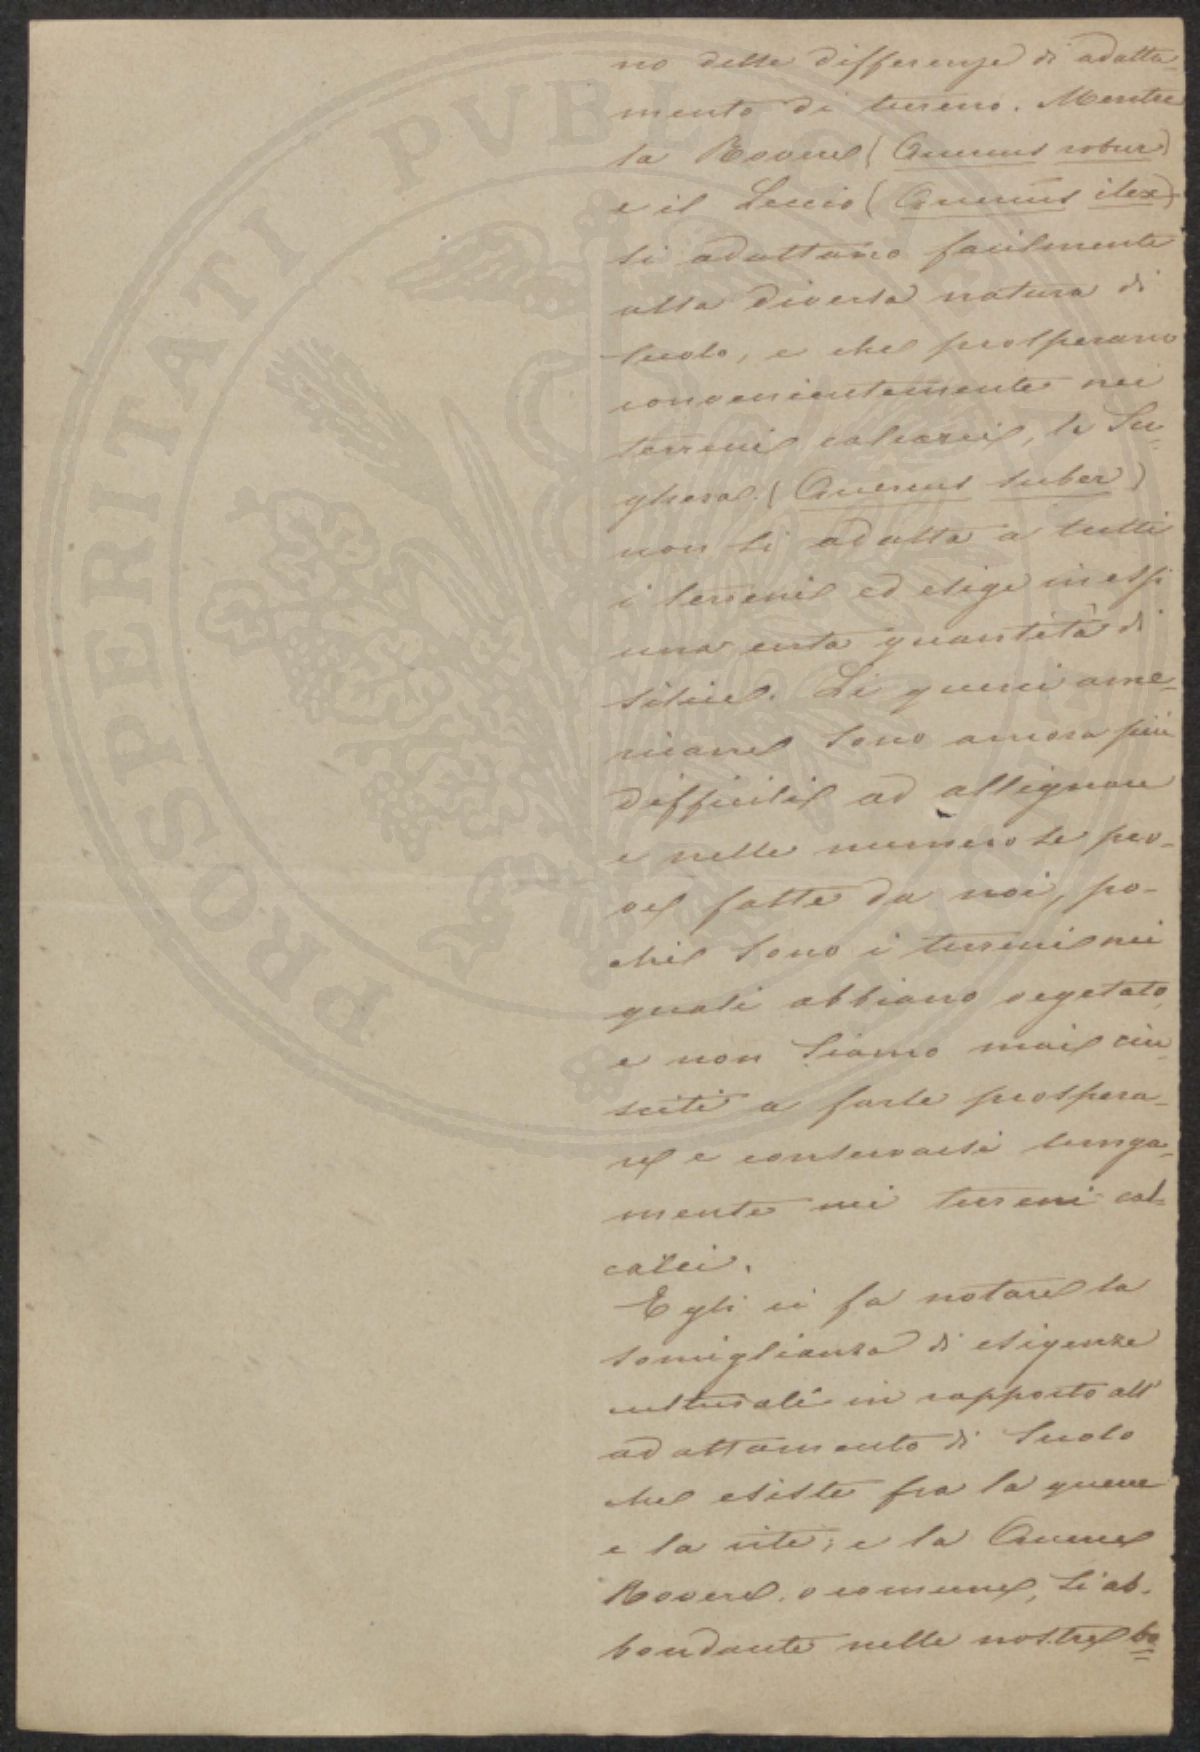 no delle differenze di adatta-
mento di terreno. Mentre
la Rovere (Quercus robur)
e il Leccio (Quercus ilex)
si adattano facilmente
alla diversa natura di
suolo, e che prosperano
convenientemente nei
terreni calcarei, la Su-
ghera (Quercus suber)
non si adatta a tutti
i terreni ed esige in essi
una certa quantità di
silice. Le querci ame-
ricane sono ancora più
difficili ad allignare
e nelle numerose pro-
ve fatte da noi, po-
chi sono i terreni nei
quali abbiano vegetato,
e non siamo mai riu-
sciti a farle prospera-
re e conservarsi lunga-
mente nei terreni cal-
carei.
Egli ci fa notare la
somiglianza di esigenze
culturali in rapporto all'
adattamento di suolo
che esiste fra la querce
e la vite; e la Querce
Rovere o comune, si ab-
bondante nelle nostre bo
PROSPERITATI PVBLICAE